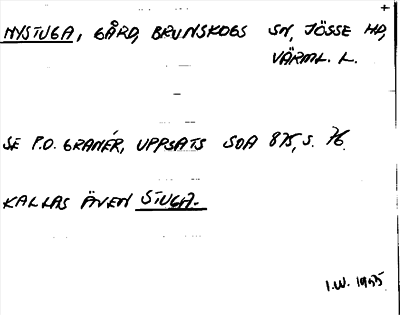 NYSTUGA, GÅRD, BRUNSKOGS SN, JÖSSE HD,
VÄRML. L.
SE P.O. GRANÉR, UPPSATS SOA 875, S. 76.
KALLAS ÄVEN STUGA.
I.W. 1935